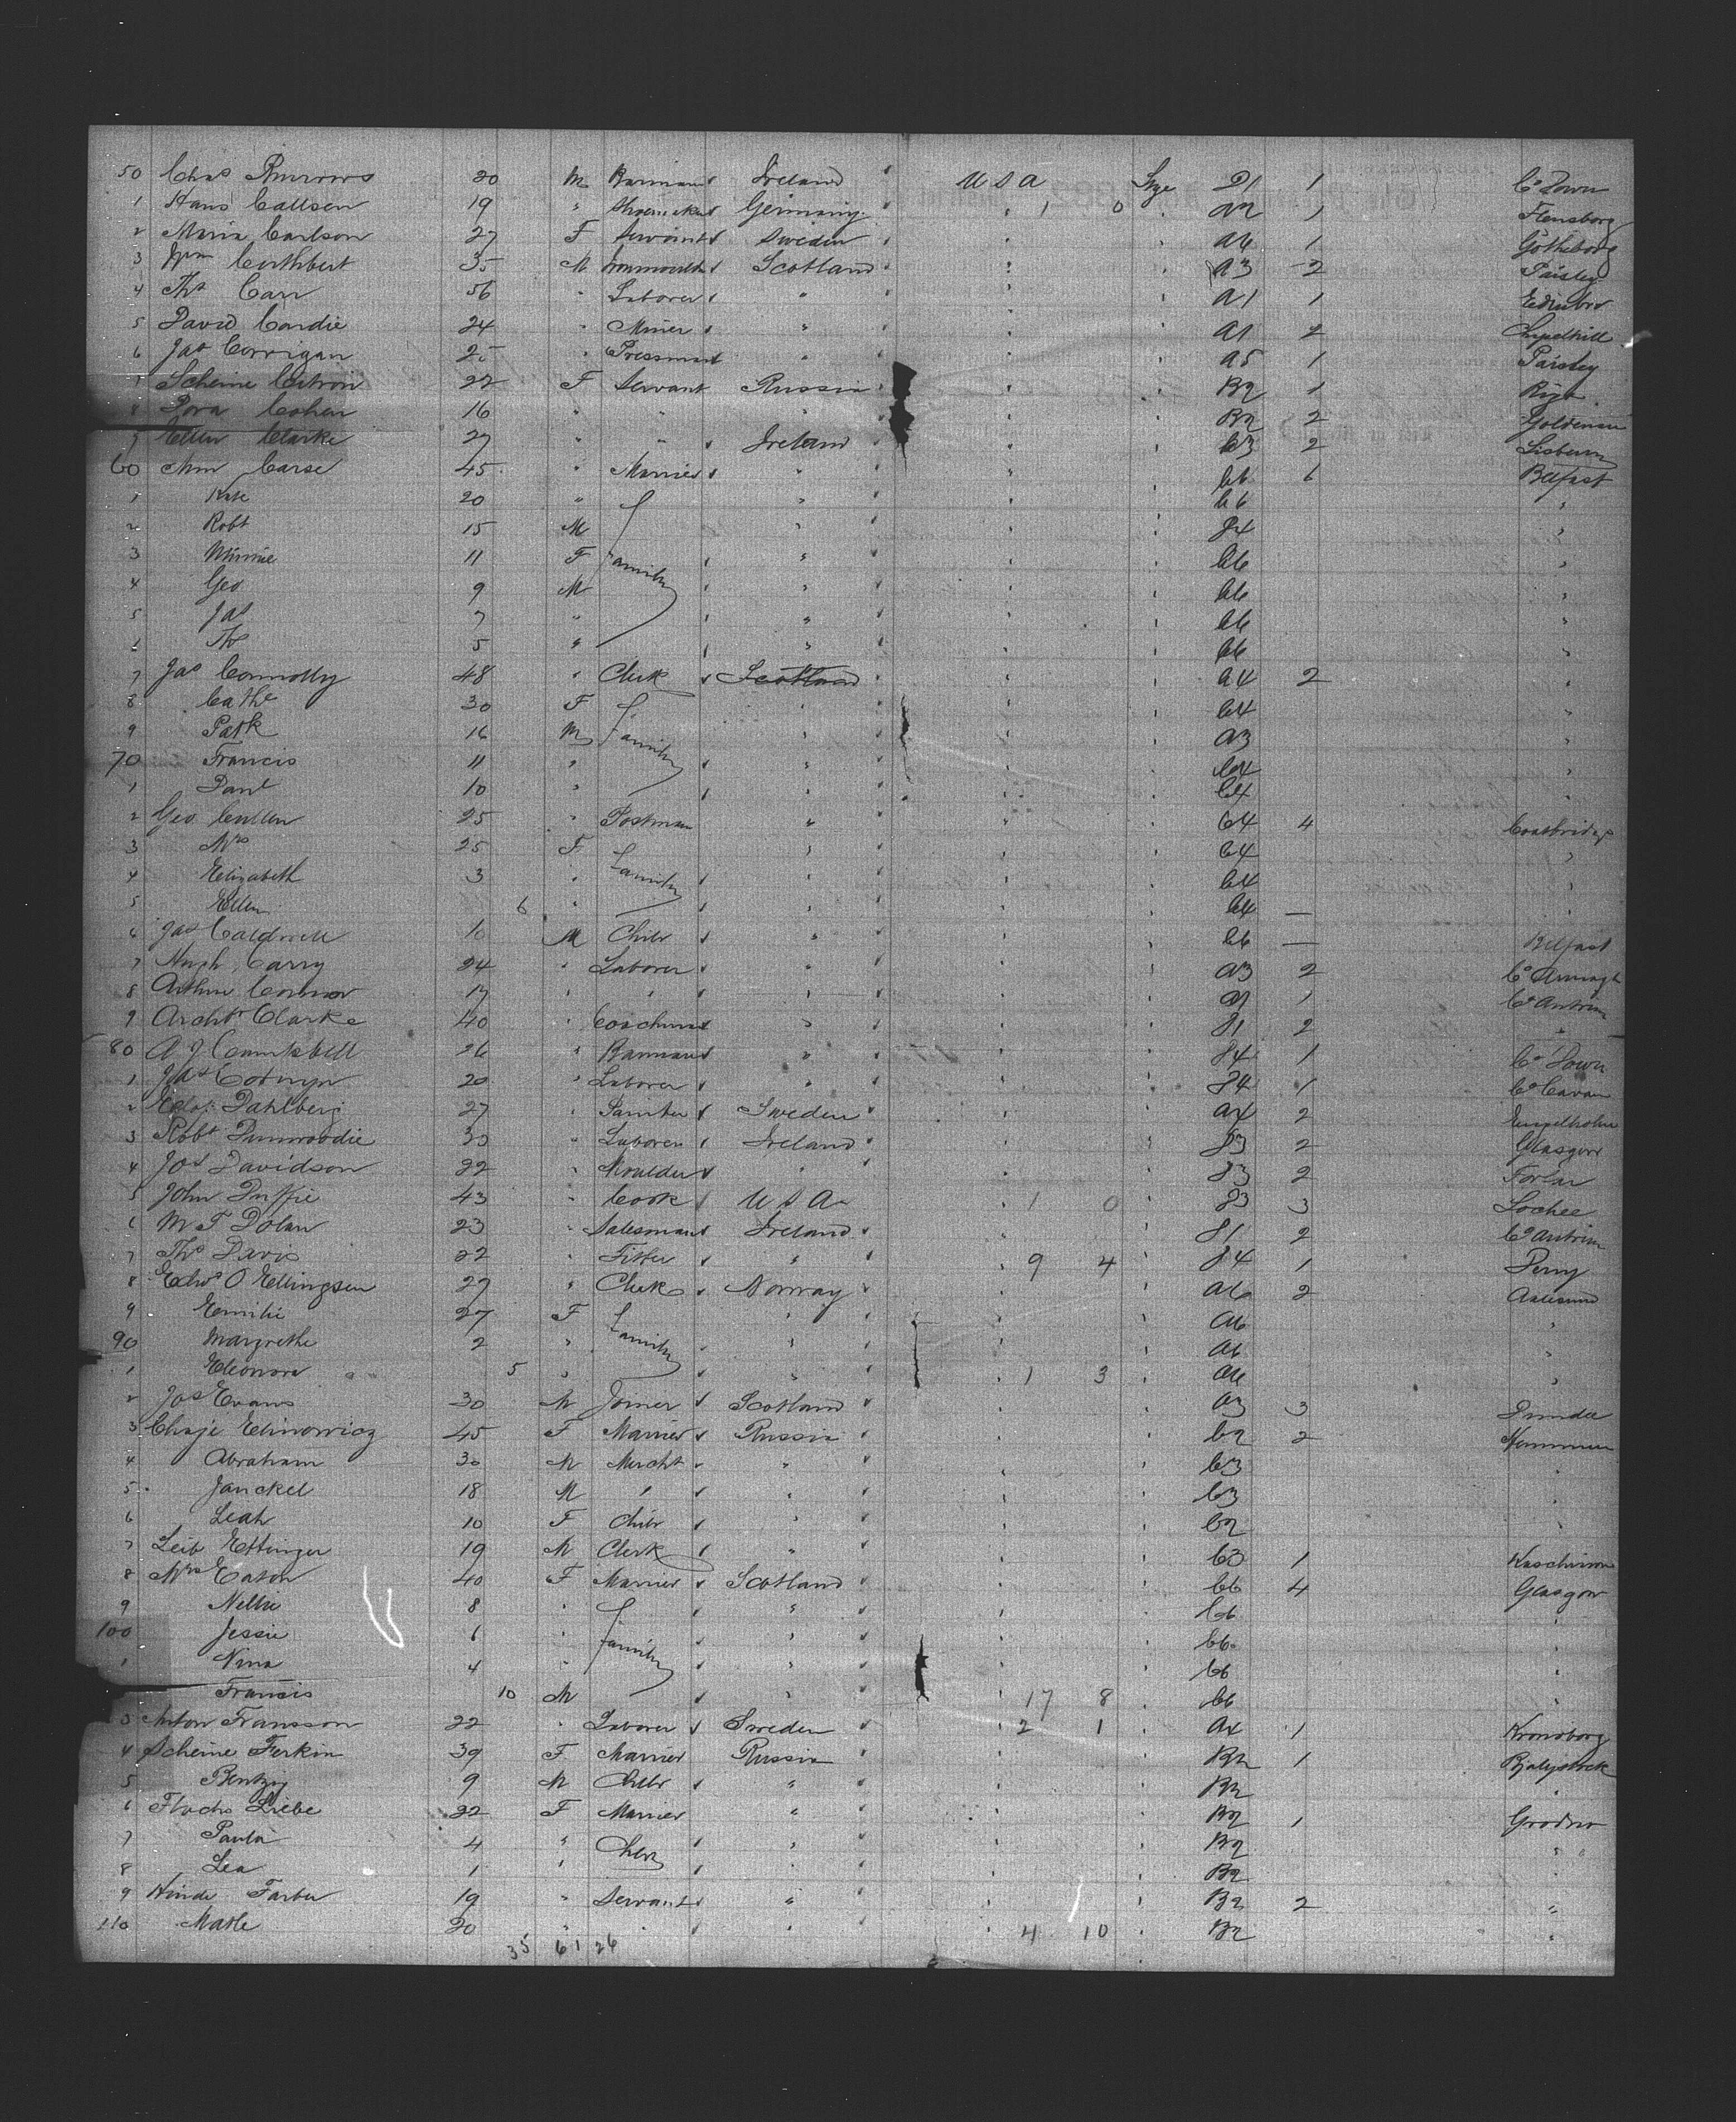 50 Chas Burrows 20 M Barman Ireland U S A Stge D1 1 Co Down
1 Hans Callsen 19 " Shoemaker Germany " 1 0 " A2 1 Flensborg
2 Maria Carlson 27 F Servant Sweden " " A6 1 Gotheborg
3 Wm Cuthbert 35 M Ironmoulder Scotland " " A3 2 Paisley
4 Ths Carr 56 " Laborer " " " A1 1 Edinbro
5 David Cardie 24 " Miner " " " A1 2
6 Jas Corrigan 25 " Pressman " " " A5 1 Paisley
7 Scheine Citron 22 F Servant Russia " " B2 1 Riga
8 Dora Cohen 16 " " " " " B2 2
9 Ellen Clarke 27 " " Ireland " " C3 2 Lisburn
60 Ann Carse 45 " Married " " " C6 6 Belfast
1 Kate 20 " " " " C6 "
2 Robt 15 M " " " D4 "
3 Minnie 11 F Family " " " C6 "
4 Geo 9 M " " " C6 "
5 Jas 7 " " " " C6 "
6 Ths 5 " " " " C6 "
7 Jas Connolly 48 " Clerk Scotland " " A4 2 "
8 Cathe 30 F " " " C4 "
9 Patk 16 M Family " " " A3 "
70 Francis 11 " " " " C4 "
1 Danl 10 " " " " C4 "
2 Geo Cullen 25 " Postman " " " C4 4 Coatbridge
3 Mrs 25 F " " " C4 "
4 Elizabeth 3 " Family " " " C4 "
5 Ellen 6 " " " " C4 — "
6 Jas Caldwell 10 M Child " " " C6 — Belfast
7 Hugh Carry 24 " Laborer " " " A3 2 Co Armagh
8 Arthur Connor 17 " " " " " A1 1 Co Antrim
9 Archt Clarke 40 " Coachman " " " D1 2 "
80 A J Campbell 26 " Barman " " " D4 1 Co Down
1 Jas 20 " Laborer " " " D4 1 Co Cavan
2 Dahlberg 27 " Painter Sweden " " A4 2 Engelholm
3 Robt Dunwoodie 30 " Laborer Ireland " " D3 2 Glasgow
4 Jos Davidson 22 " Moulder " " " D3 2 Forfar
5 John Duffie 43 " Cook U S A 1 0 " D3 3 Lochee
6 M T Dolan 23 " Salesman Ireland " " D1 2 Co Antrim
7 Ths Davis 22 " Fitter " " 9 4 " D4 1 Derry
8 Edwd O Ellingsen 27 " Clerk Norway " " A6 2 Aalesund
9 Emilie 27 F " " " A6 "
90 Margrethe 2 " Family " " " A6 "
1 Eleonora 5 " " " 1 3 " A6 "
2 Jas Evans 30 M Joiner Scotland " " A3 3 Dundee
3 Chaje Elinowicz 45 F Married Russia " " C2 2
4 Abraham 30 M Mercht " " " C3 "
5 Janckel 18 M " " " " C3 "
6 Leah 10 F Child " " " C2 "
7 Leib Ettinger 19 M Clerk " " " C3 1
8 Mrs Eaton 40 F Married Scotland " " C6 4 Glasgow
9 Nellie 8 " " " " C6 "
100 Jessie 6 " Family " " " C6 "
1 Nina 4 " " " " C6 "
Francis 10 M " 17 8 " C6 "
3 Anton Fransson 22 " Laborer Sweden 2 1 " A4 1 Kronoborg
4 Scheine Ferkin 39 F Married Russia " " B2 1 Bjalystock
5 Bentzig 9 M Child " " " B2 "
6 Flochs Liebe 22 F Married " " " B2 1 Grodno
7 Paula 4 " Child " " " B2 "
8 Lea 1 " " " " B2 "
9 Hinde Farber 19 " Servant " " " B2 2 "
110 Matle 20 " " " 4 10 " B2 "
35 61 26